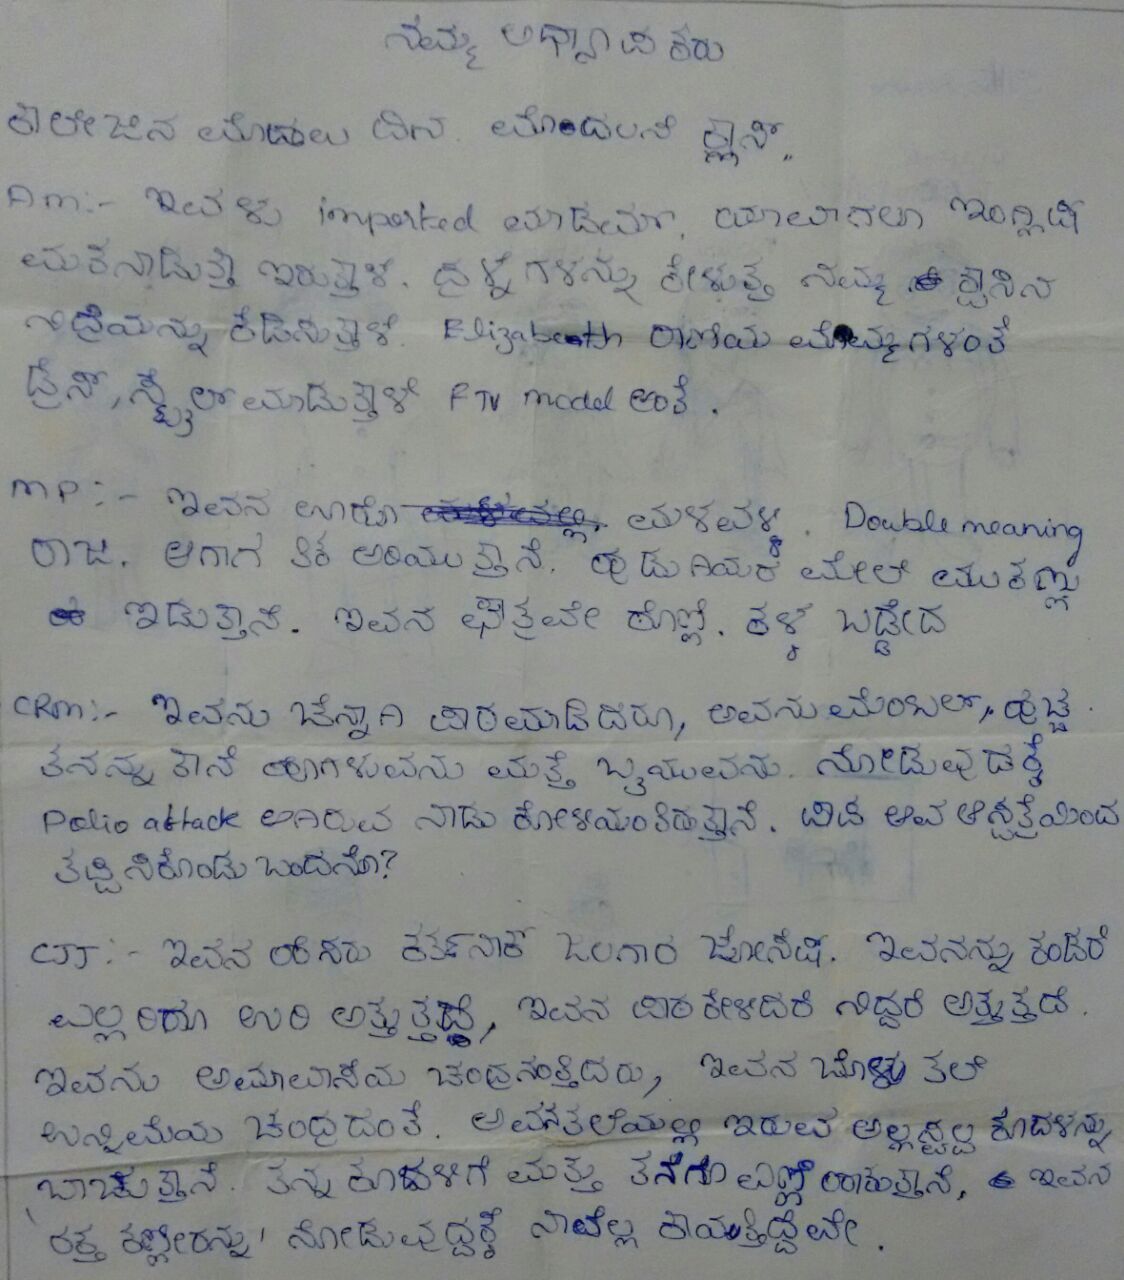 ನಮ್ಮ ಅಧ್ಯಾಪಕರು
ಕಾಲೇಜಿನ ಮೊದಲು ದಿನ. ಮೊಂದಲನೆ ಕ್ಲಾಸ್..
Am:- ಇವಳು imported ಮಾಡಮ್. ಯಾವಾಗಲೂ ಇಂಗ್ಲಿಷ್
ಮತನಾಡುತ್ತಾ ಇರುತ್ತಾಳೆ. ಪ್ರಶ್ನೆಗಳನ್ನು ಕೇಳುತ್ತ ನಮ್ಮ ಕ್ಲಾಸಿನ
ನಿದ್ರೆಯನ್ನು ಕೆಡಿಸುತ್ತಾಳೆ. Elizabeth ರಾಣಿಯ ಮೊಮ್ಮಗಳಂತೆ
ಡ್ರೆಸ್, ಸ್ಟೈಲ್ ಮಾಡುತ್ತಾಳೆ FTV model ಅಂತೆ.
MP:- ಇವನ ಊರೊ ಮಳವಳ್ಳಿ. Double meaning
ರಾಜ. ಆಗಾಗ ಕಿಕ ಅರಿಯುತ್ತಾನೆ. ಹುಡುಗಿಯರ ಮೇಲೆ ಮುಕಣ್ಣು
ಇಡುತ್ತಾನೆ. ಇವನ ಛತ್ರವೇ ಕೊಣ್ಣೆ. ಕಳ್ಳ ಬಡ್ಡೇದ
CRM:- ಇವನು ಚೆನ್ನಾಗಿ ಪಾಠಮಾಡಿದರೂ, ಅವನು ಮೆಂಟಲ್, ಹುಚ್ಚ.
ತನನ್ನು ತಾನೆ ಹಾಗಳುವನು ಮತ್ತೆ ಬೈಯುವನು. ನೋಡುವುದಕ್ಕೆ
Polio attack ಆಗಿರುವ ನಾಡು ಕೋಳಿಯಂತಿರುತ್ತಾನೆ. ಯಾವ ಆಸ್ಪತ್ರೆಯಿಂದ
ತಪ್ಪಿಸಿಕೊಂಡು ಬಂದನೊ?
CJJ:- ಇವನ ಹೆಸರು ಕರ್ತನಾಕ್ ಜಲಗಾರ ಜೋಸೆಫ್. ಇವನನ್ನು ಕಂಡರೆ
ಎಲ್ಲರಿಗೂ ಉರಿ ಅತ್ತುತ್ತದೆ, ಇವನ ಪಾಠ ಕೇಳಿದರೆ ನಿದ್ದರೆ ಅತ್ತುತ್ತದೆ.
ಇವನು ಅಮಾವಾಸೆಯ ಚಂದ್ರನಂತ್ತಿದರು, ಇವನ ಬೊಳು ತಲೆ
ಉಣ್ಣಿಮೆಯ ಚಂದ್ರದಂತೆ. ಅವನತಲೆಯಲ್ಲಿ ಇರುವ ಅಲ್ಲಸ್ವಲ್ಪ ಕೂದಳನ್ನು
ಬಾಚುತ್ತಾನೆ. ತನ್ನ ಕೂದಳಿಗೆ ಮತ್ತು ತನೆಗೂ ಎಣ್ಣೆ ಹಾಕುತ್ತಾನೆ, ಇವನ
'ರಕ್ತ ಕಣ್ಣೀರನ್ನು' ನೋಡುವುದ್ದಕ್ಕೆ ನಾವೆಲ್ಲ ಕಾಯುತ್ತಿದ್ದೆವೇ.